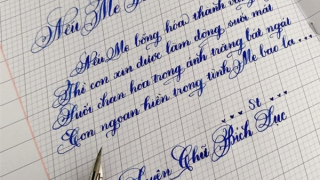 Nếu Mẹ
Nếu Mẹ bỗng hóa thành vầng
Thì con xin được làm dòng suối mát
Suối chan hòa trong ánh trăng bát ngát
Con ngoan hiền trong tình Mẹ bao la...
St
Luyện Chữ Bích Lục